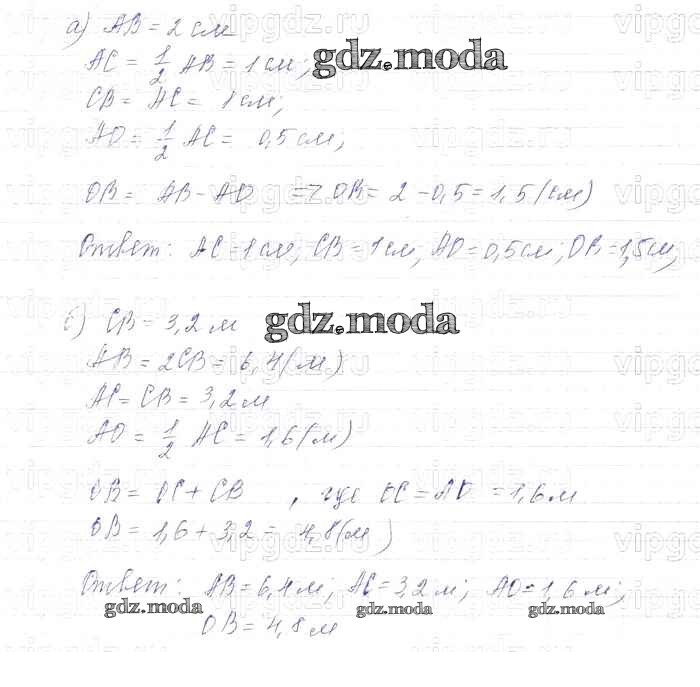 а) AB = 2 см
AC = 1/2 AB = 1 см;
gdz.moda
CB = AC = 1 см;
AO = 1/2 AC = 0,5 см;
OB = AB - AO => OB = 2 - 0,5 = 1,5 (см)
Ответ: AC = 1 см, CB = 1 см, AO = 0,5 см, OB = 1,5 см,
б) CB = 3,2 м
gdz.moda
AB = 2CB = 6,4 (м)
AC = CB = 3,2 м
AO = 1/2 AC = 1,6 (м)
OB = OC + CB , где OC = AO = 1,6 м
OB = 1,6 + 3,2 = 4,8 (м)
Ответ: AB = 6,4 м, AC = 3,2 м; AO = 1,6 м;
gdz.moda gdz.moda gdz.moda
OB = 4,8 м
vipgdz.ru